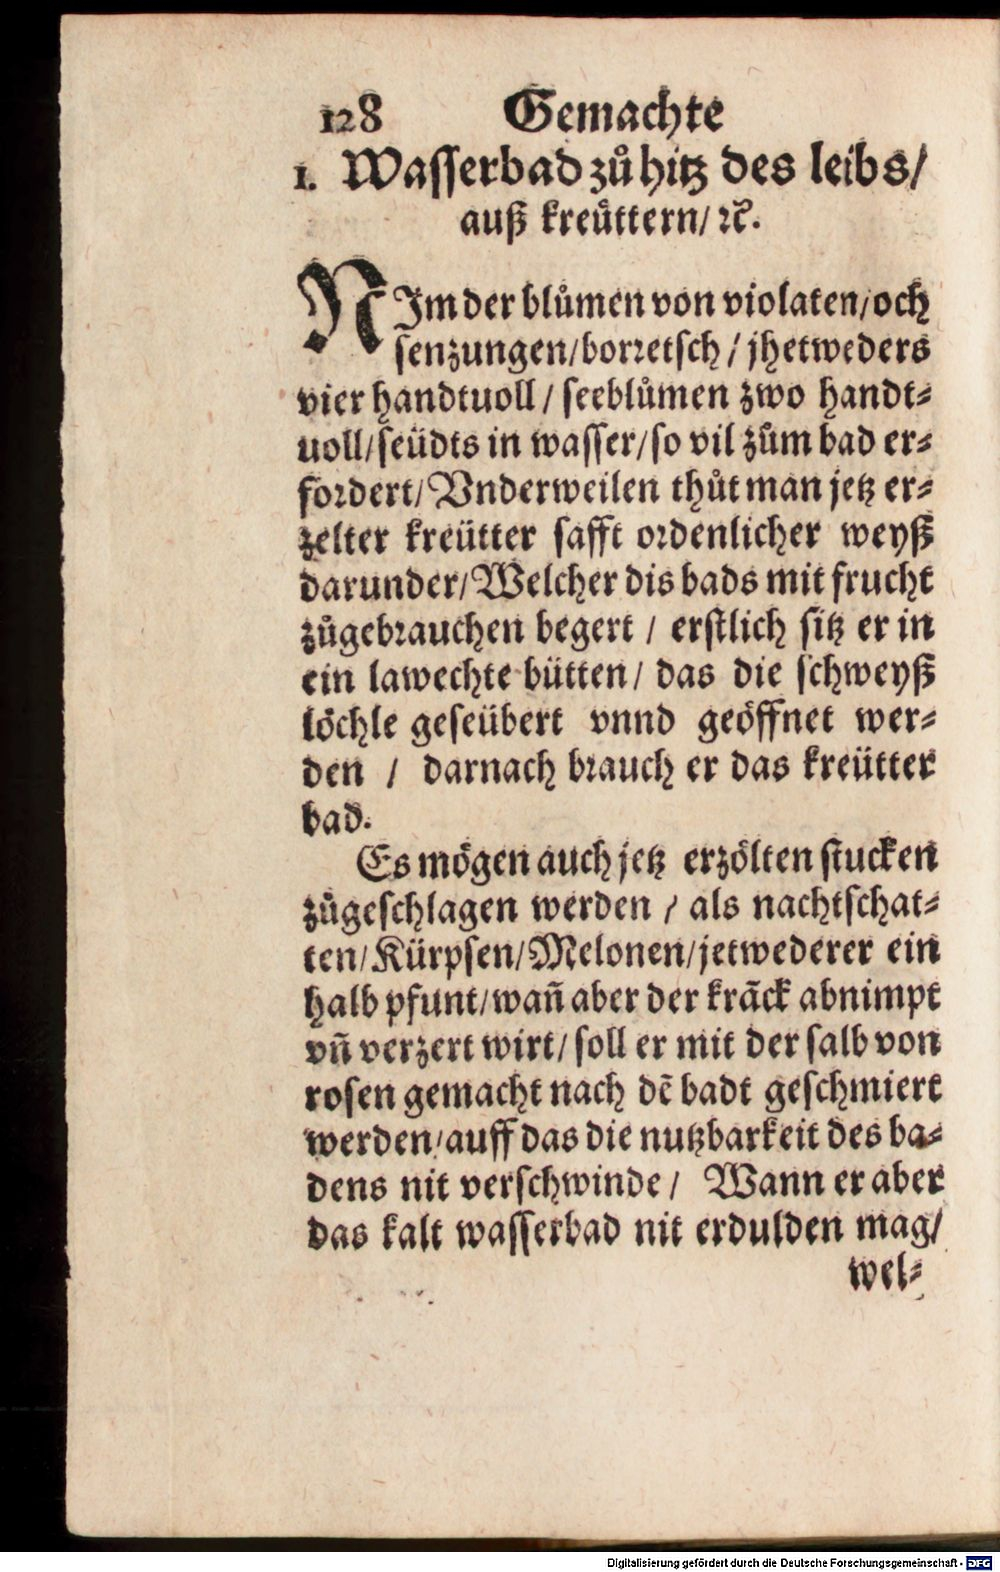 128 Gemachte
1. Wasserbad zů hitz des leibs/
auß kreüttern/ ꝛc̃.
NIm der blůmen von violaten/och
senzungen/borretsch/jhetweders
vier handtuoll/ seeblůmen zwo handt⸗
uoll/seüdts in wasser/so vil zům bad er⸗
fordert/Vnderweilen thůt man jetz er⸗
zelter kreütter safft ordenlicher weyß
darunder/Welcher dis bads mit frucht
zůgebrauchen begert / erstlich sitz er in
ein lawechte bütten/ das die schweyß
löchle geseübert vnnd geöffnet wer⸗
den / darnach brauch er das kreütter
bad.
Es mögen auch jetz erzölten stucken
zůgeschlagen werden / als nachtschat⸗
ten/Kürpsen/Melonen/jetwederer ein
halb pfunt/wañ aber der krãck abnimpt
vñ verzert wirt/ soll er mit der salb von
rosen gemacht nach dẽ badt geschmiert
werden/auff das die nutzbarkeit des ba⸗
dens nit verschwinde/ Wann er aber
das kalt wasserbad nit erdulden mag/
wel⸗
Digitalisierung gefördert durch die Deutsche Forschungsgemeinschaft - DFG